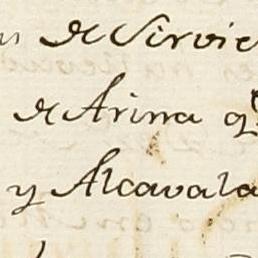 de Sirvie
de Arina q
y Alcavala